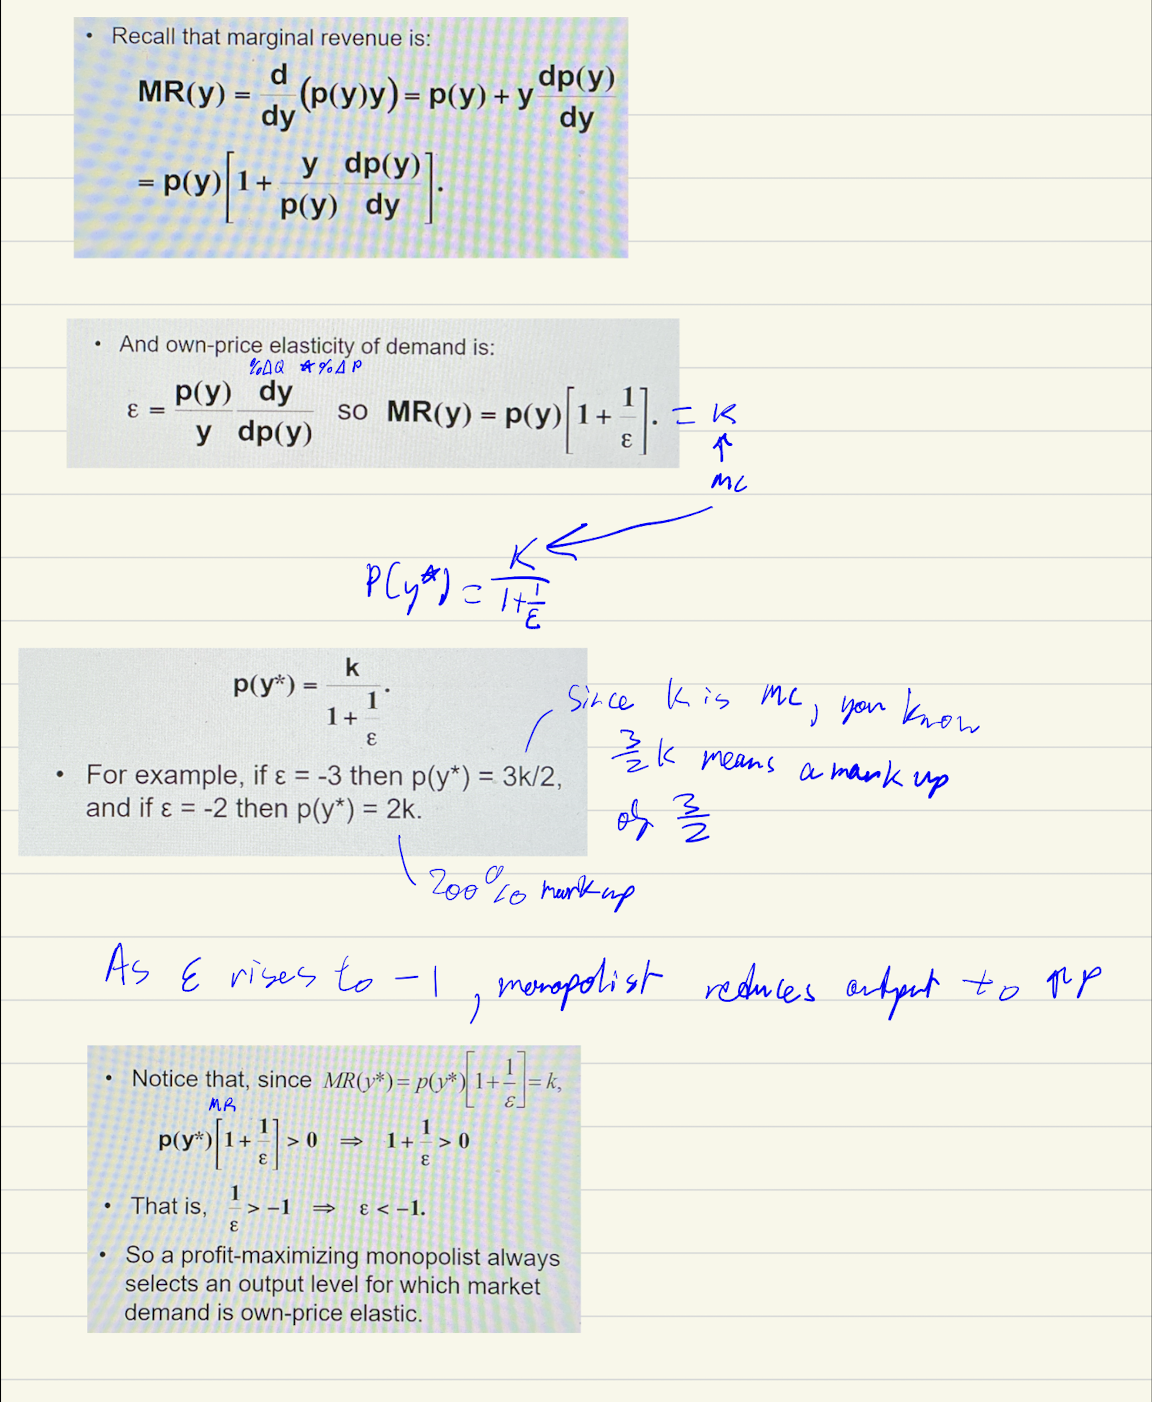 • Recall that marginal revenue is:
MR(y) = d/dy (p(y)y) = p(y) + y dp(y)/dy
= p(y)[1 + y/p(y) dp(y)/dy].
• And own-price elasticity of demand is:
%ΔQ * %ΔP
ε = p(y)/y dy/dp(y) so MR(y) = p(y)[1 + 1/ε]. = K
↑
MC
P(y*) = K/(1+1/ε)
p(y*) = k/(1 + 1/ε).
Since k is MC, you know
3/2 k means a mark up
of 3/2
• For example, if ε = -3 then p(y*) = 3k/2,
and if ε = -2 then p(y*) = 2k.
200% mark up
As ε rises to -1, monopolist reduces output to ↑P
• Notice that, since MR(y*) = p(y*)[1 + 1/ε] = k,
MR
p(y*)[1 + 1/ε] > 0 ⇒ 1 + 1/ε > 0
• That is, 1/ε > -1 ⇒ ε < -1.
• So a profit-maximizing monopolist always
selects an output level for which market
demand is own-price elastic.